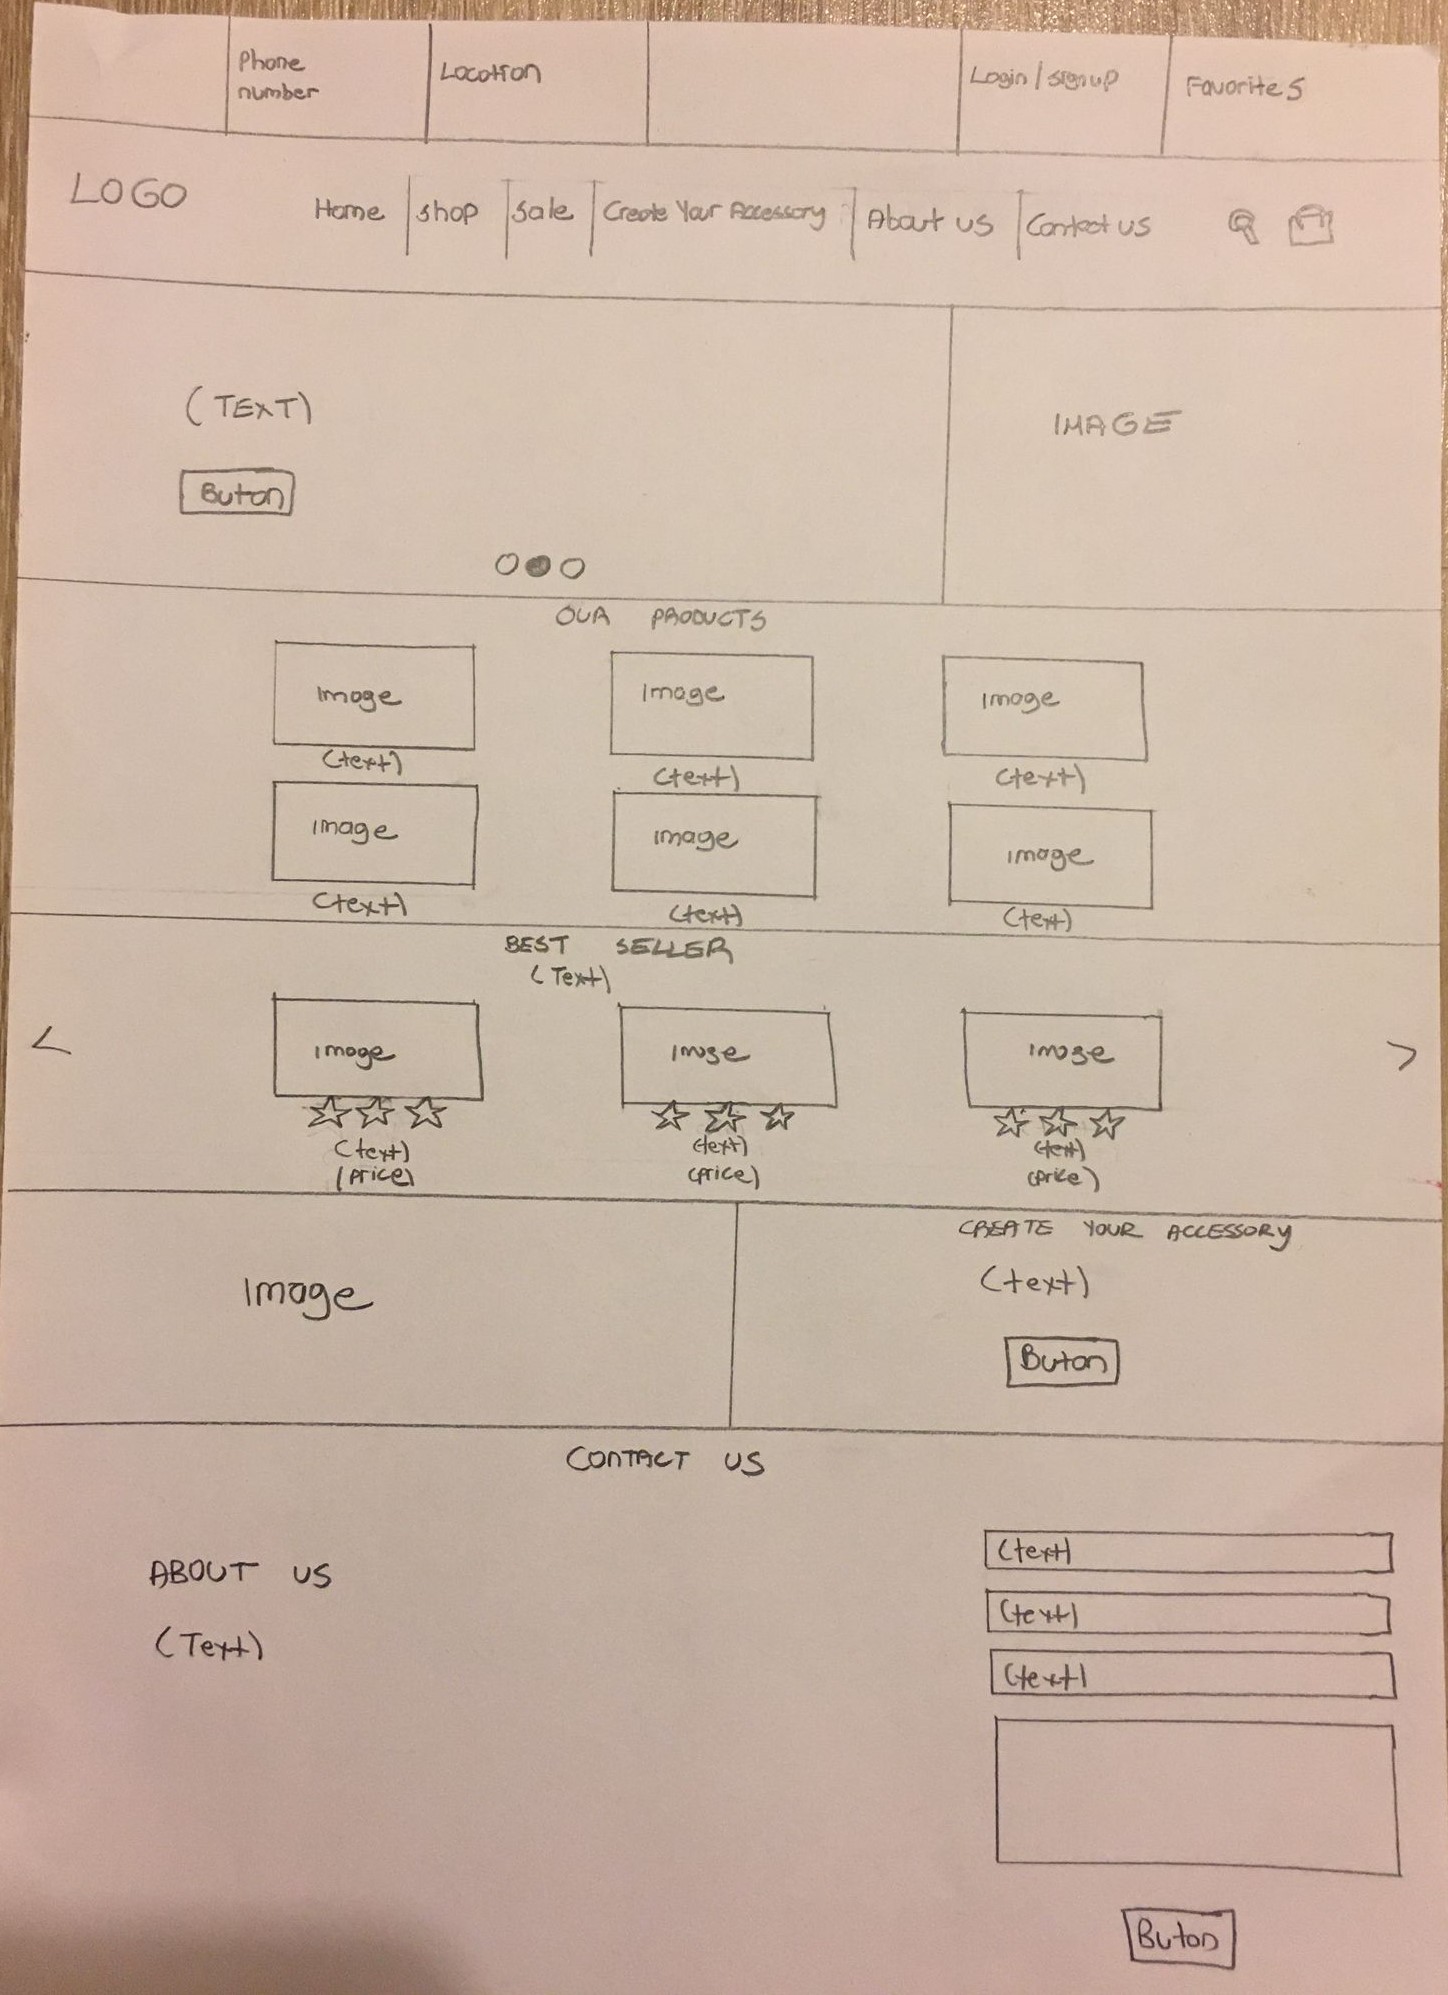 Phone
number
Location
Login / signup
Favorites
LOGO
Home
shop
Sale
Create Your Accessory
About us
Contact us
(TEXT)
Buton
IMAGE
OUR PRODUCTS
Image
Image
Image
(text)
(text)
(text)
Image
Image
Image
(text)
(text)
(text)
BEST SELLER
(Text)
<
Image
Image
Image
>
(text)
(text)
(text)
(price)
(price)
(price)
Image
CREATE YOUR ACCESSORY
(text)
Buton
CONTACT US
ABOUT US
(Text)
(text)
(text)
(text)
Buton